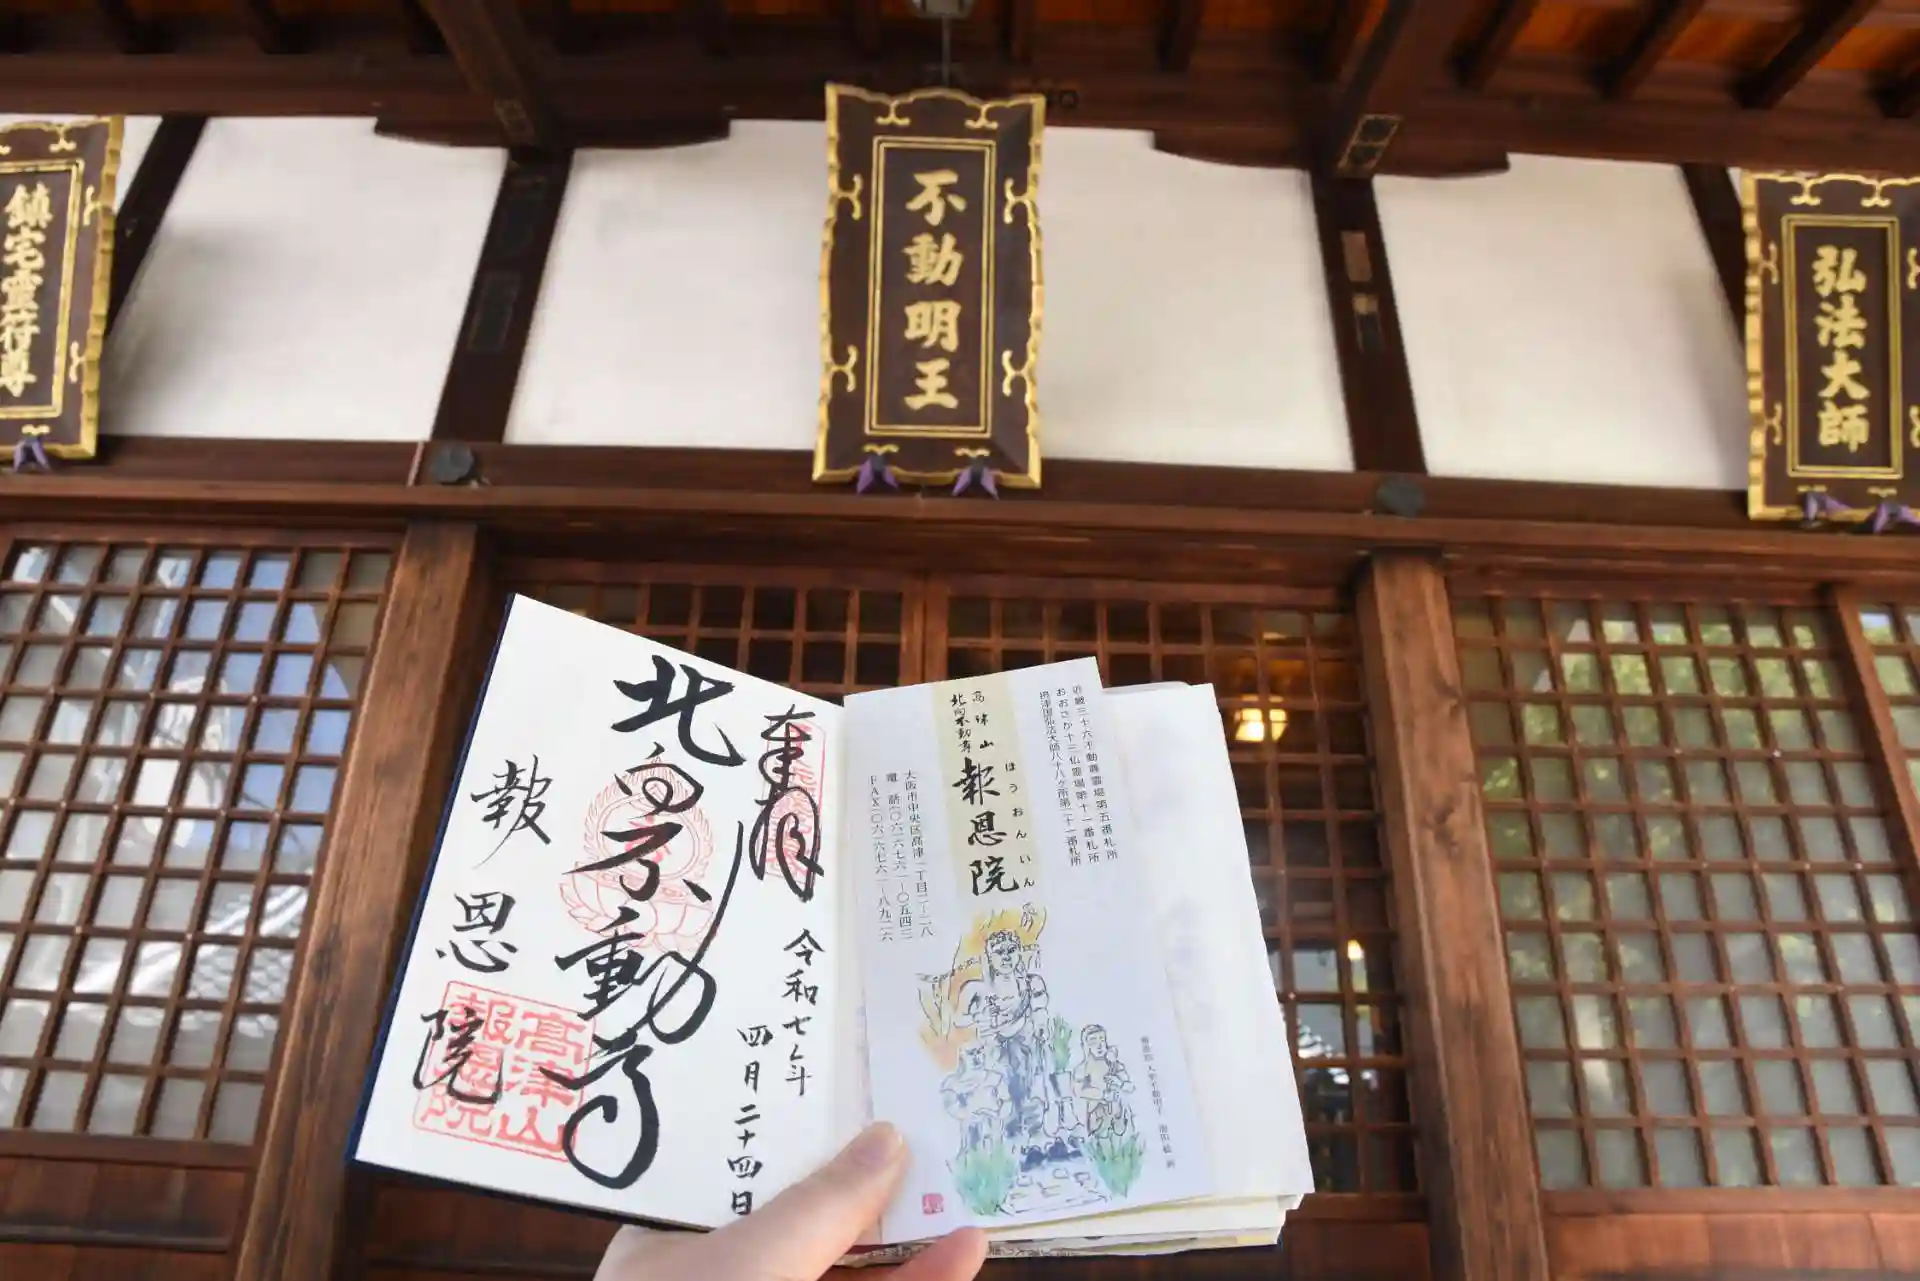 鎮宅霊符尊
不動明王
弘法大師
奉拝
令和七年
四月二十四日
北向不動寺
報恩院
高津山
報恩院
近畿三十六不動尊霊場第五番札所
おおさか十三仏霊場第十一番札所
摂津国弘法大師八十八ヶ所第二十一番札所
高津山
北向不動寺
報恩院
ほうおんいん
大阪市中央区高津一丁目二ー二八
電 話(〇六)六七六一ー〇五四三
FAX(〇六)六七六一ー八九二六